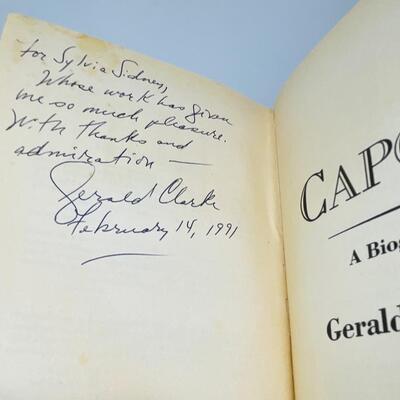 for Sylvia Sidney,
Whose work has given
me so much pleasure.
With thanks and
admiration —
Gerald Clarke
February 14, 1991
CAPO
A Biog
Gerald